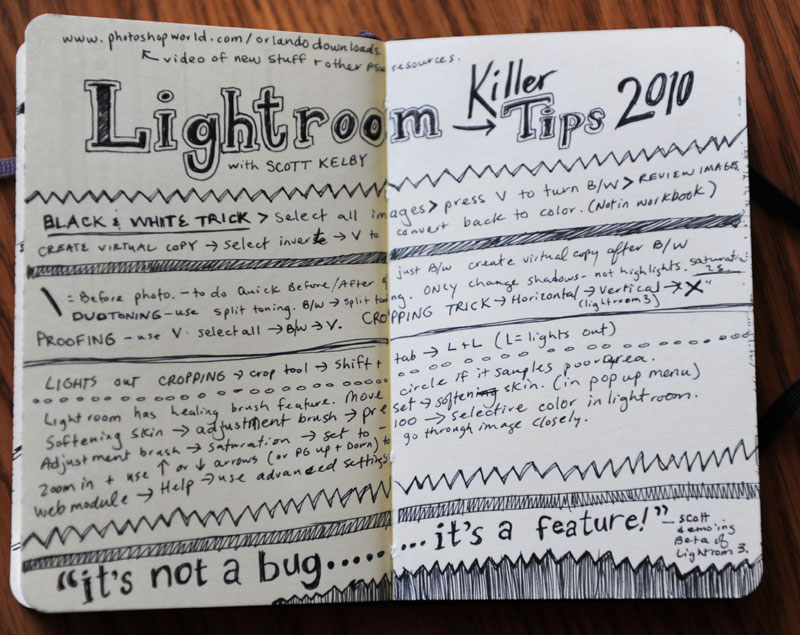 www.photoshopworld.com/orlandodownloads.
↖ video of new stuff + other PSW resources.
Lightroom → Killer Tips 2010
with SCOTT KELBY
BLACK & WHITE TRICK > Select all images > press V to turn B/W > REVIEW IMAGE.
CREATE VIRTUAL COPY → Select inverte → V to convert back to color. (Not in workbook)
just B/W create virtual copy after B/W
\ = Before photo. - to do Quick Before/After
DUOTONING - use split toning. B/W → split toning. ONLY change shadows - not highlights. saturation 25
PROOFING - use V. select all → B/W → V. CROPPING TRICK → Horizontal → Vertical → "X"
(lightroom 3)
LIGHTS OUT CROPPING → crop tool → Shift + tab → L+L (L = lights out)
Lightroom has healing brush feature. Move circle if it samples poor area.
Softening Skin → adjustment brush → preset → softening skin. (in pop up menu)
Adjustment brush → Saturation → set to -100 → Selective color in lightroom.
Zoom in + use ↑ or ↓ arrows (or PG up + Down) to go through image closely.
web module → Help → use advanced settings
"it's not a bug........ it's a feature!" - Scott
demoing
Beta of
Lightroom 3.